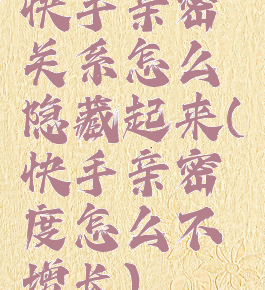 快手亲密
关系怎么
隐藏起来(
快手亲密
度怎么不
增长)